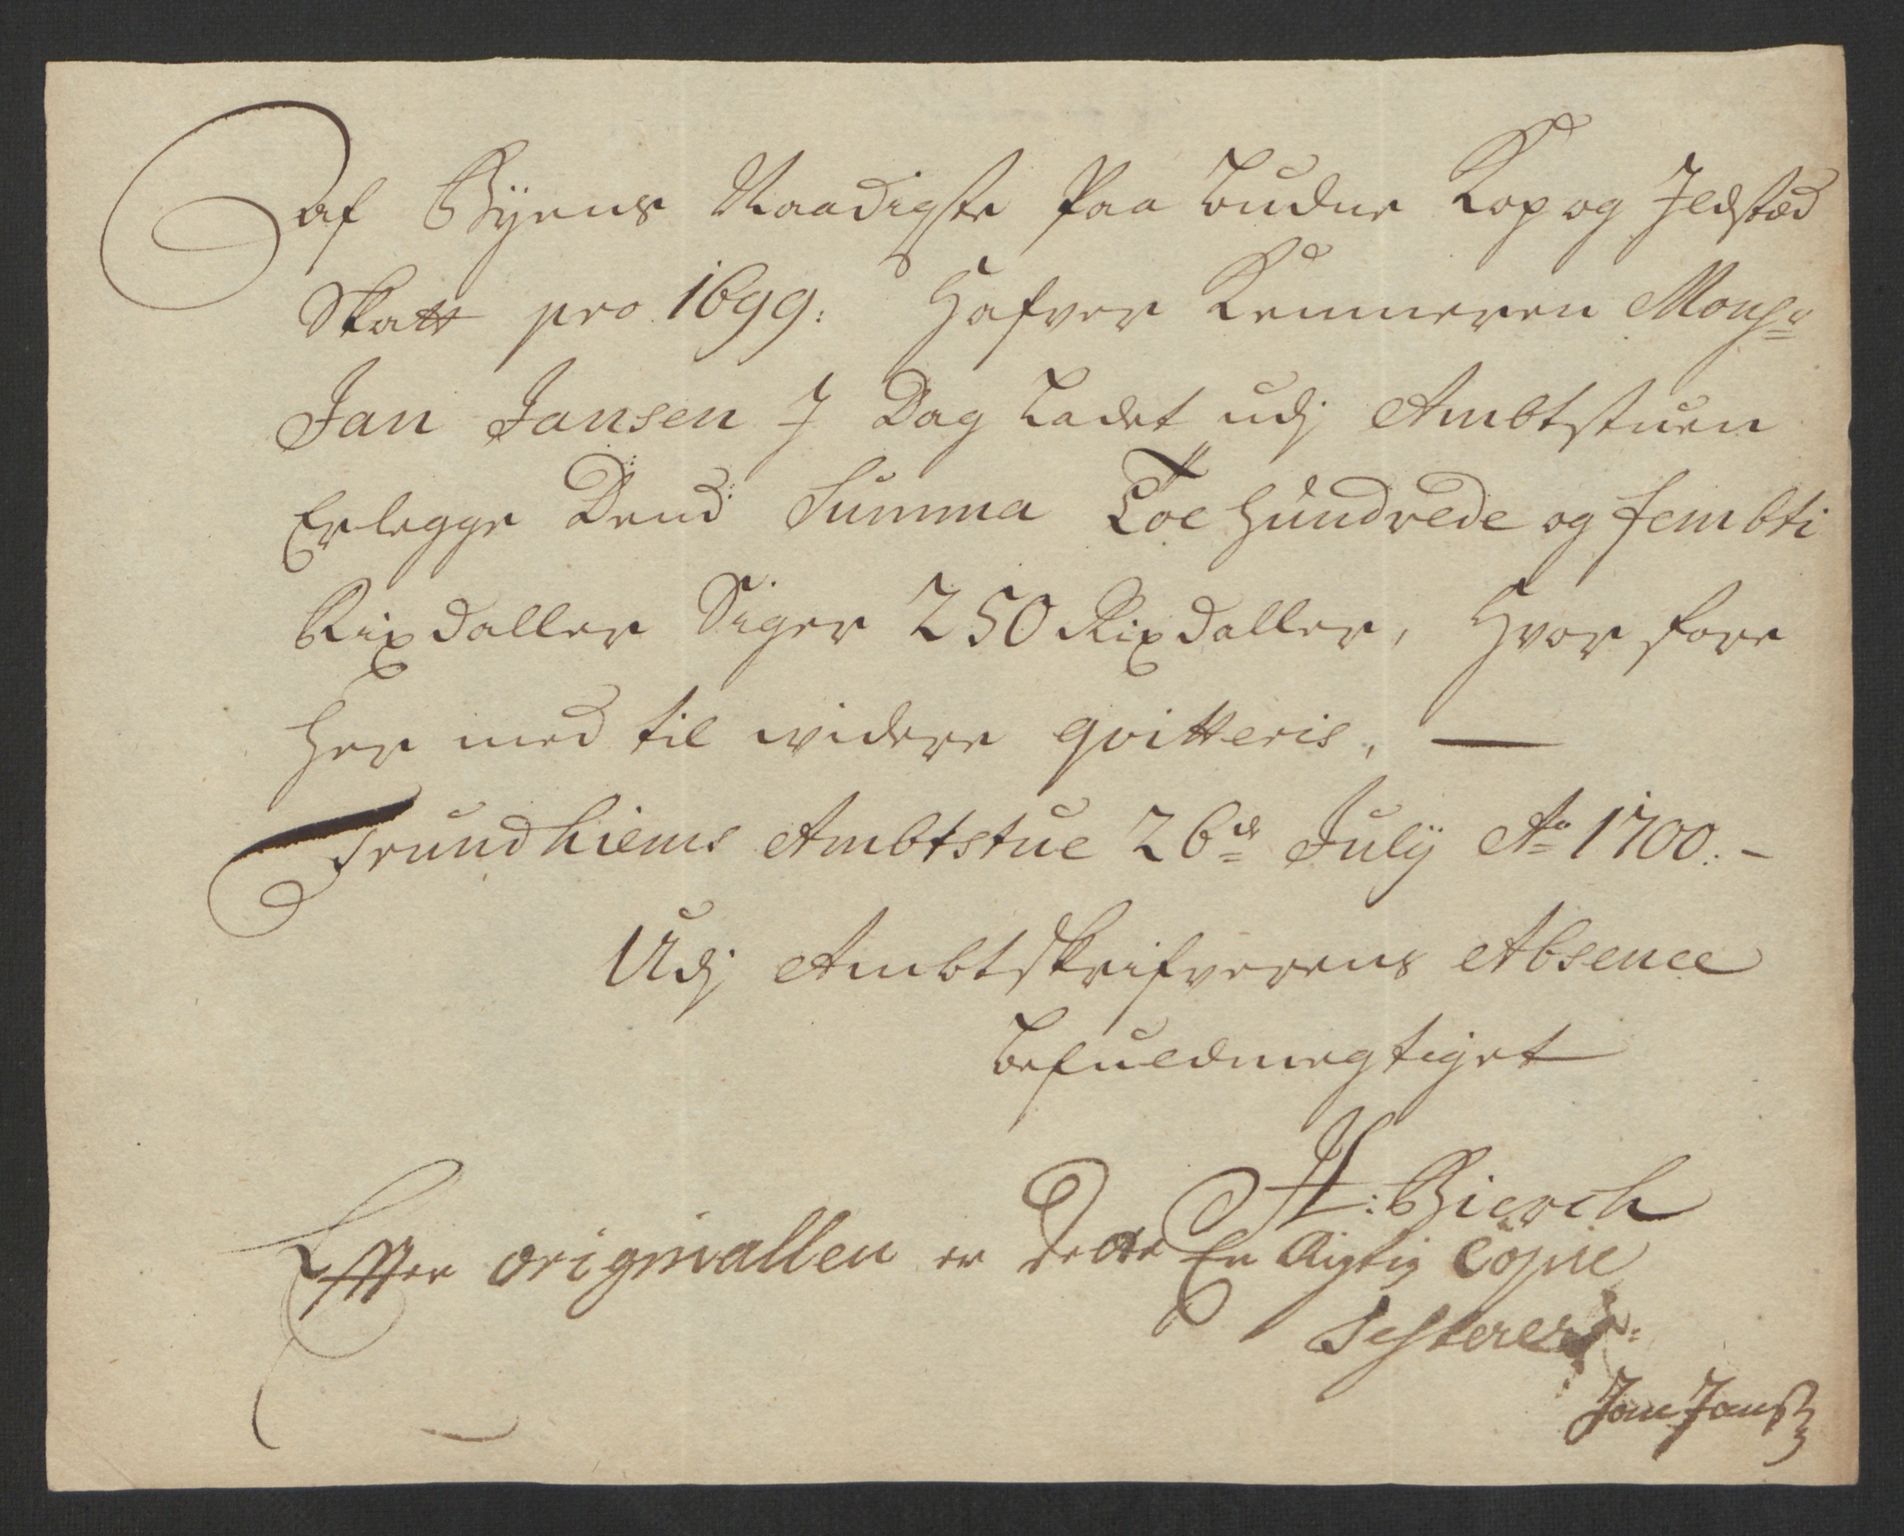 af Byens Naadigste Paa budne Kop og Ildstæd
Skatt pro 1699: Hafver Kemneren Monsr
Jan Jansen I Dag Ladet udj Ambtstuen
Erlegge Dend Summa Toe hundrede og fembti
Rixdaller Siger 250 Rixdaller, Hvor fore
her med til widere qvitteris, —
Trundhiems Ambtstue 26de July Ao 1700. -
Udj Ambtskrifverens Absence
befuldmegtiget
H: Bierch
Effter originallen er dette En Rigtig Copie
Testerer:
Jan Janß